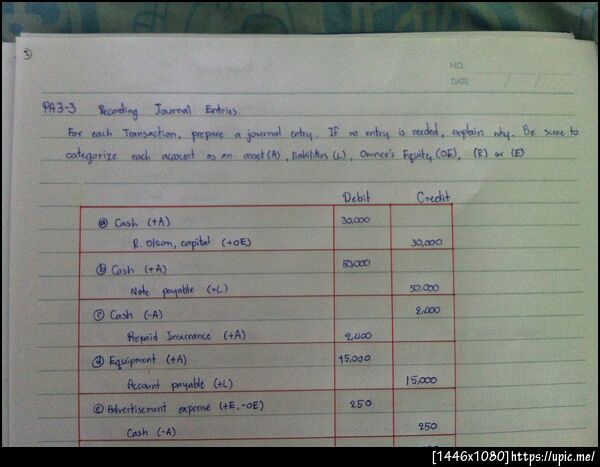 3
NO.
DATE
PA3-3 Recording Journal Entries
For each Transaction, prepare a journal entry. If no entry is needed, explain why. Be sure to
categorize each account as an asset (A), liabilities (L), Owner's Equity (OE), (R) or (E)
Debit Credit
ⓐ Cash (+A) 30,000
R. Olson, capital (+OE) 30,000
ⓑ Cash (+A) 50,000
Note payable (+L) 50,000
ⓒ Cash (-A) 2,400
Prepaid Insurance (+A) 2,400
ⓓ Equipment (+A) 15,000
Account payable (+L) 15,000
ⓔ Advertisement expense (+E, -OE) 250
Cash (-A) 250
[1446x1080]https://upic.me/